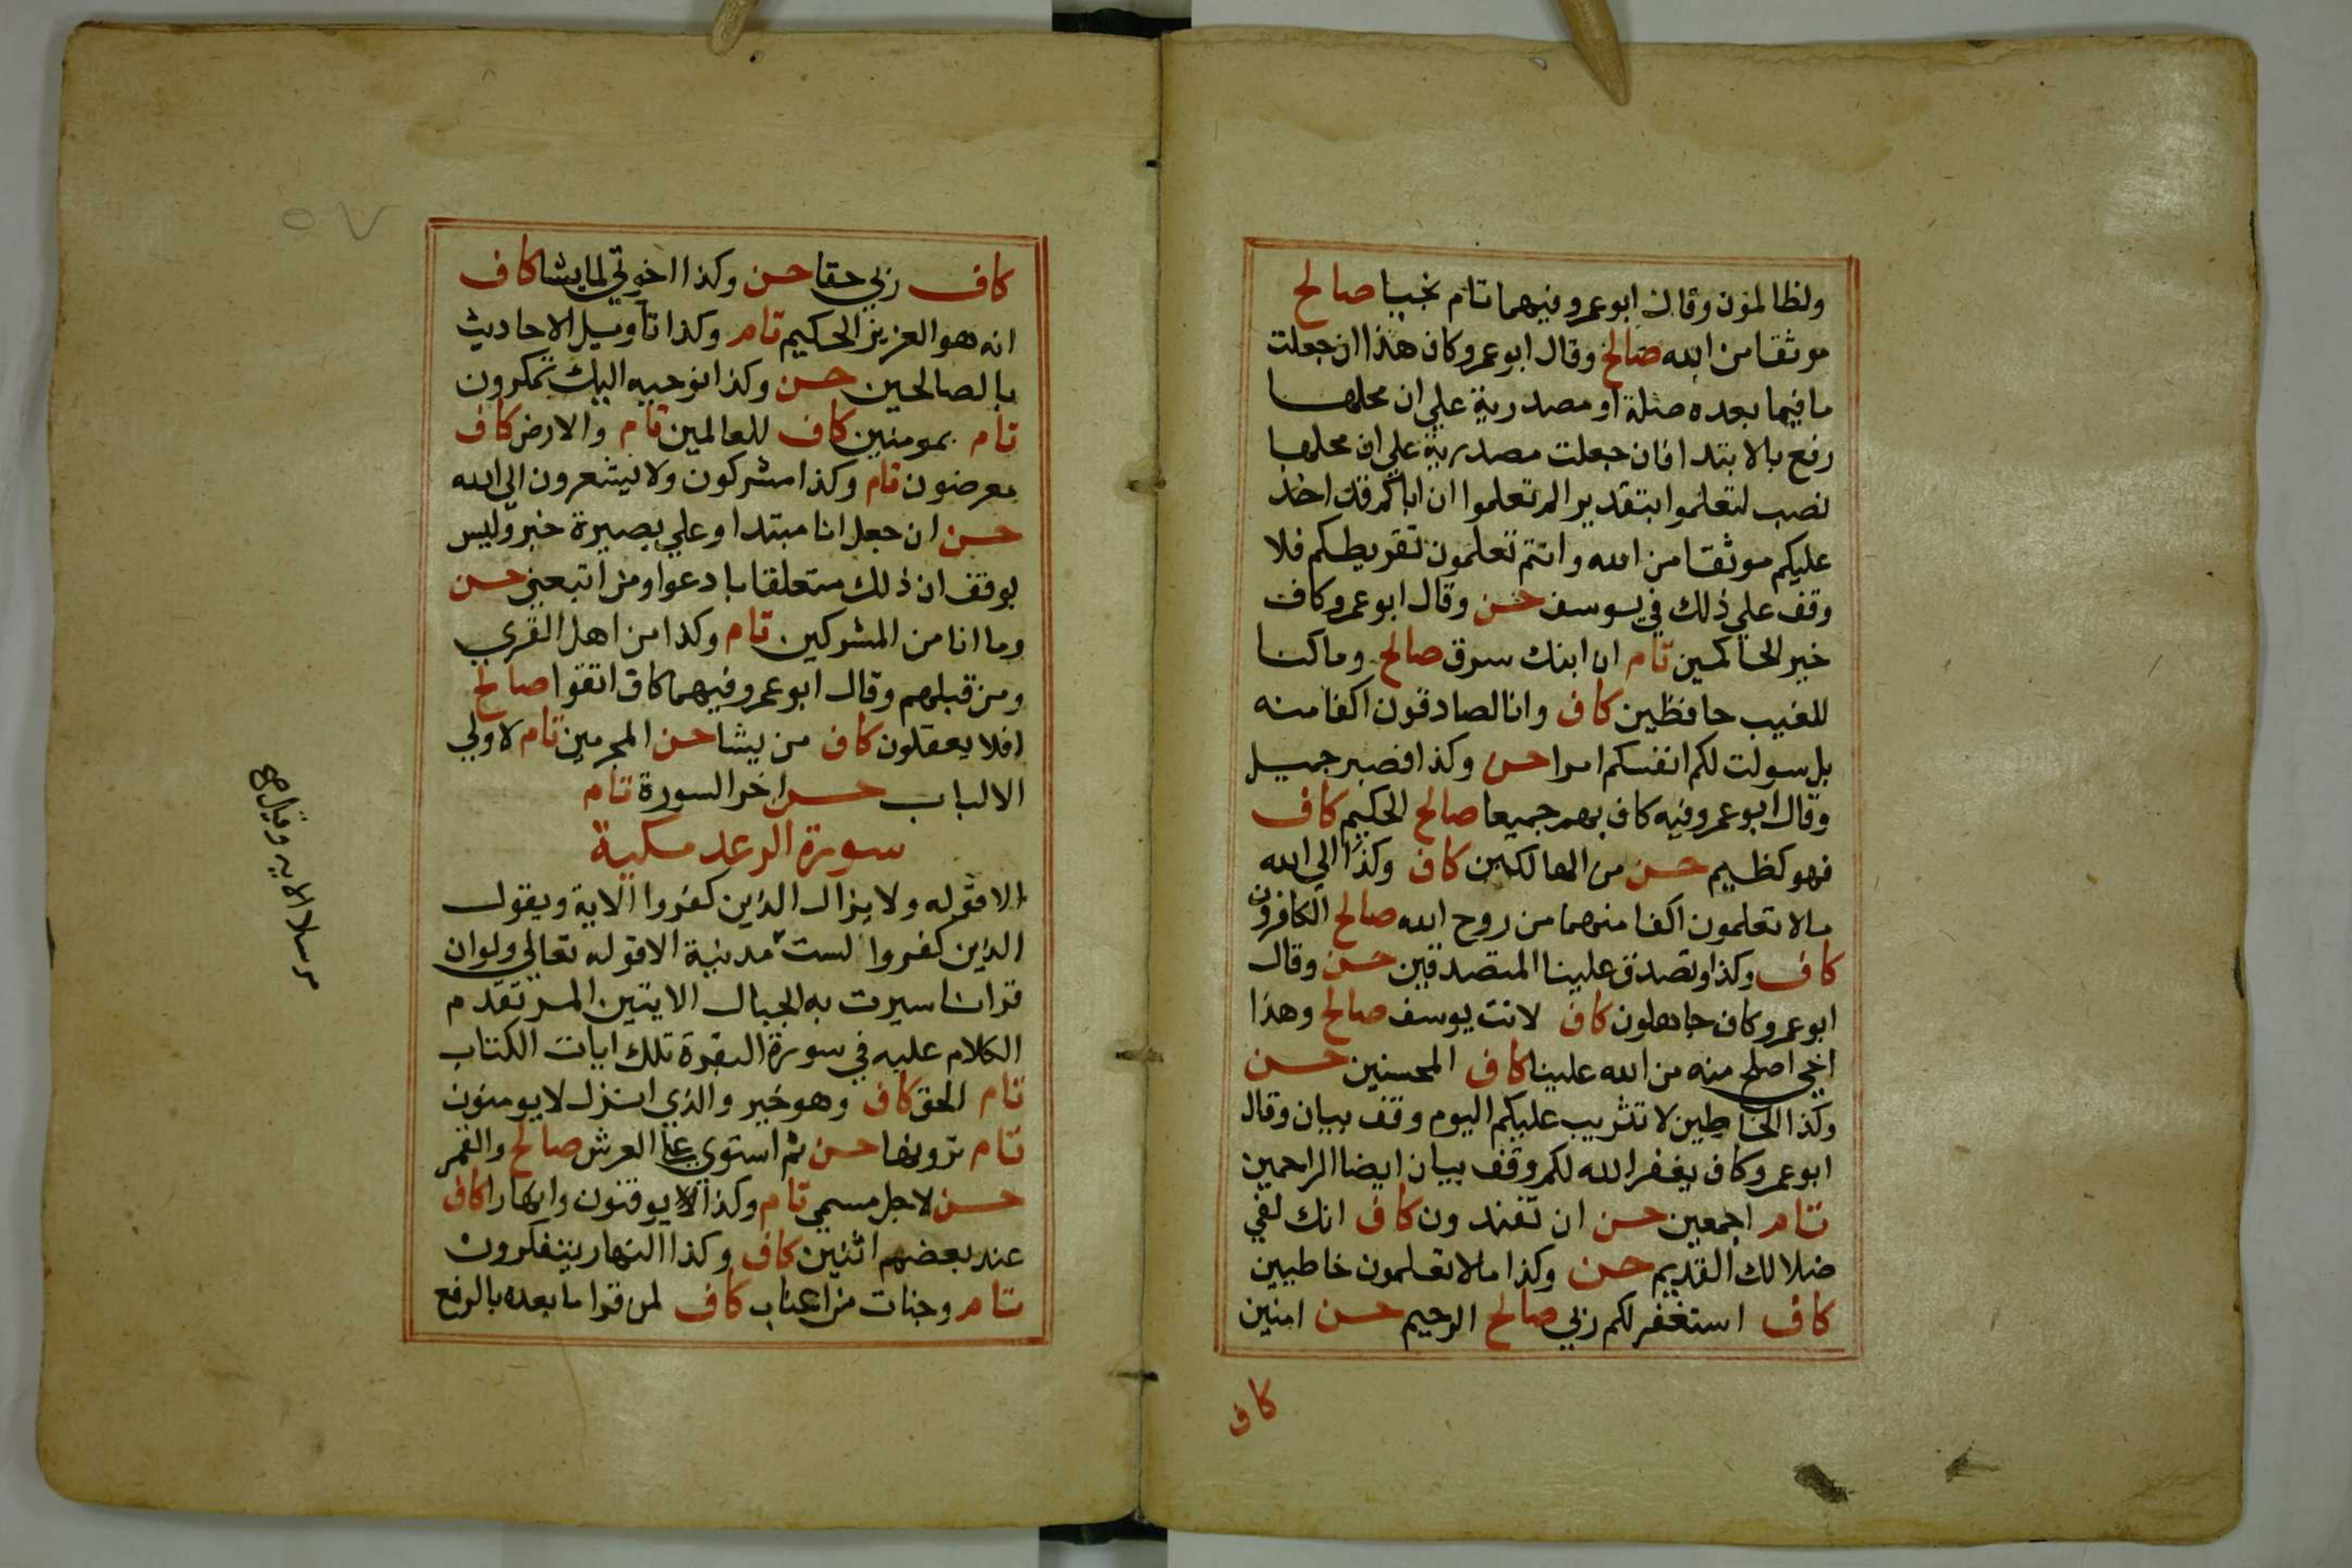 ولظالمون وقال ابو عمرو فيهما تام نجيا صالح
موثقا من الله صالح وقال ابو عمرو كاف هذا ان جعلت
ما فيما بعده صلة او مصدرية علي ان محلها
رفع بالابتدا فان جعلت مصدرية علي ان محلها
نصب لتعلموا بتقدير الم تعلموا ان اباكم قد اخذ
عليكم موثقا من الله وانتم تعلمون تفريطكم فلا
وقف علي ذلك في يوسف حسن وقال ابو عمرو كاف
خير الحاكمين تام ان ابنك سرق صالح وما كنا
للغيب حافظين كاف وانا لصادقون اكفا منه
بل سولت لكم انفسكم امرا حسن وكذا فصبر جميل
وقال ابو عمرو فيه كاف بهم جميعا صالح الحكيم كاف
فهو كظيم حسن من الهالكين كاف وكذا الي الله
مالا تعلمون اكفا منهما من روح الله صالح الكافرون
كاف وكذا وتصدق علينا المتصدقين حسن وقال
ابو عمرو كاف جاهلون كاف لانت يوسف صالح وهذا
اخي اصلح منه من الله علينا كاف المحسنين حسن
وكذا الخاطين لا تثريب عليكم اليوم وقف بيان وقال
ابو عمرو كاف يغفر الله لكم وقف بيان ايضا الراحمين
تام اجمعين حسن ان تفندون كاف انك لفي
ضلالك القديم حسن وكذا مالا تعلمون خاطيين
كاف استغفر لكم ربي صالح الرحيم حسن امنين
كاف
كاف ربي حقا حسن وكذا اخوتي لما يشا كاف
انه هو العزيز الحكيم تام وكذا تاويل الاحاديث
بالصالحين حسن وكذا نوحيه اليك يمكرون
تام بمومنين كاف للعالمين تام والارض كاف
معرضون تام وكذا مشركون ولا يشعرون الي الله
حسن ان جعل انا مبتدا وعلي بصيرة خبر وليس
بوقف ان ذلك متعلقا بادعوا ومن اتبعني حسن
وما انا من المشركين تام وكذا من اهل القري
ومن قبلهم وقال ابو عمرو فيهما كاف اتقوا صالح
افلا يعقلون كاف من يشا حسن المجرمين تام لاولي
الالباب حسن اخر السورة تام
سورة الرعد مكية
الا قوله ولا يزال الذين كفروا الاية ويقول
الذين كفروا لست مدنية الا قوله تعالي ولوان
قرانا سيرت به الجبال الايتين المر تقدم
الكلام عليه في سورة البقرة تلك ايات الكتاب
تام الحق كاف وهو خبر والذي انزل لا يومنون
تام ترونها حسن ثم استوي علي العرش صالح والقمر
حسن لاجل مسمي تام وكذا يوقنون وانهارا كاف
عند بعضهم اثنين كاف وكذا النهار يتفكرون
تام وجنات من اعناب كاف لمن قرا ما بعده بالرفع
مرسلا الاية وقيل